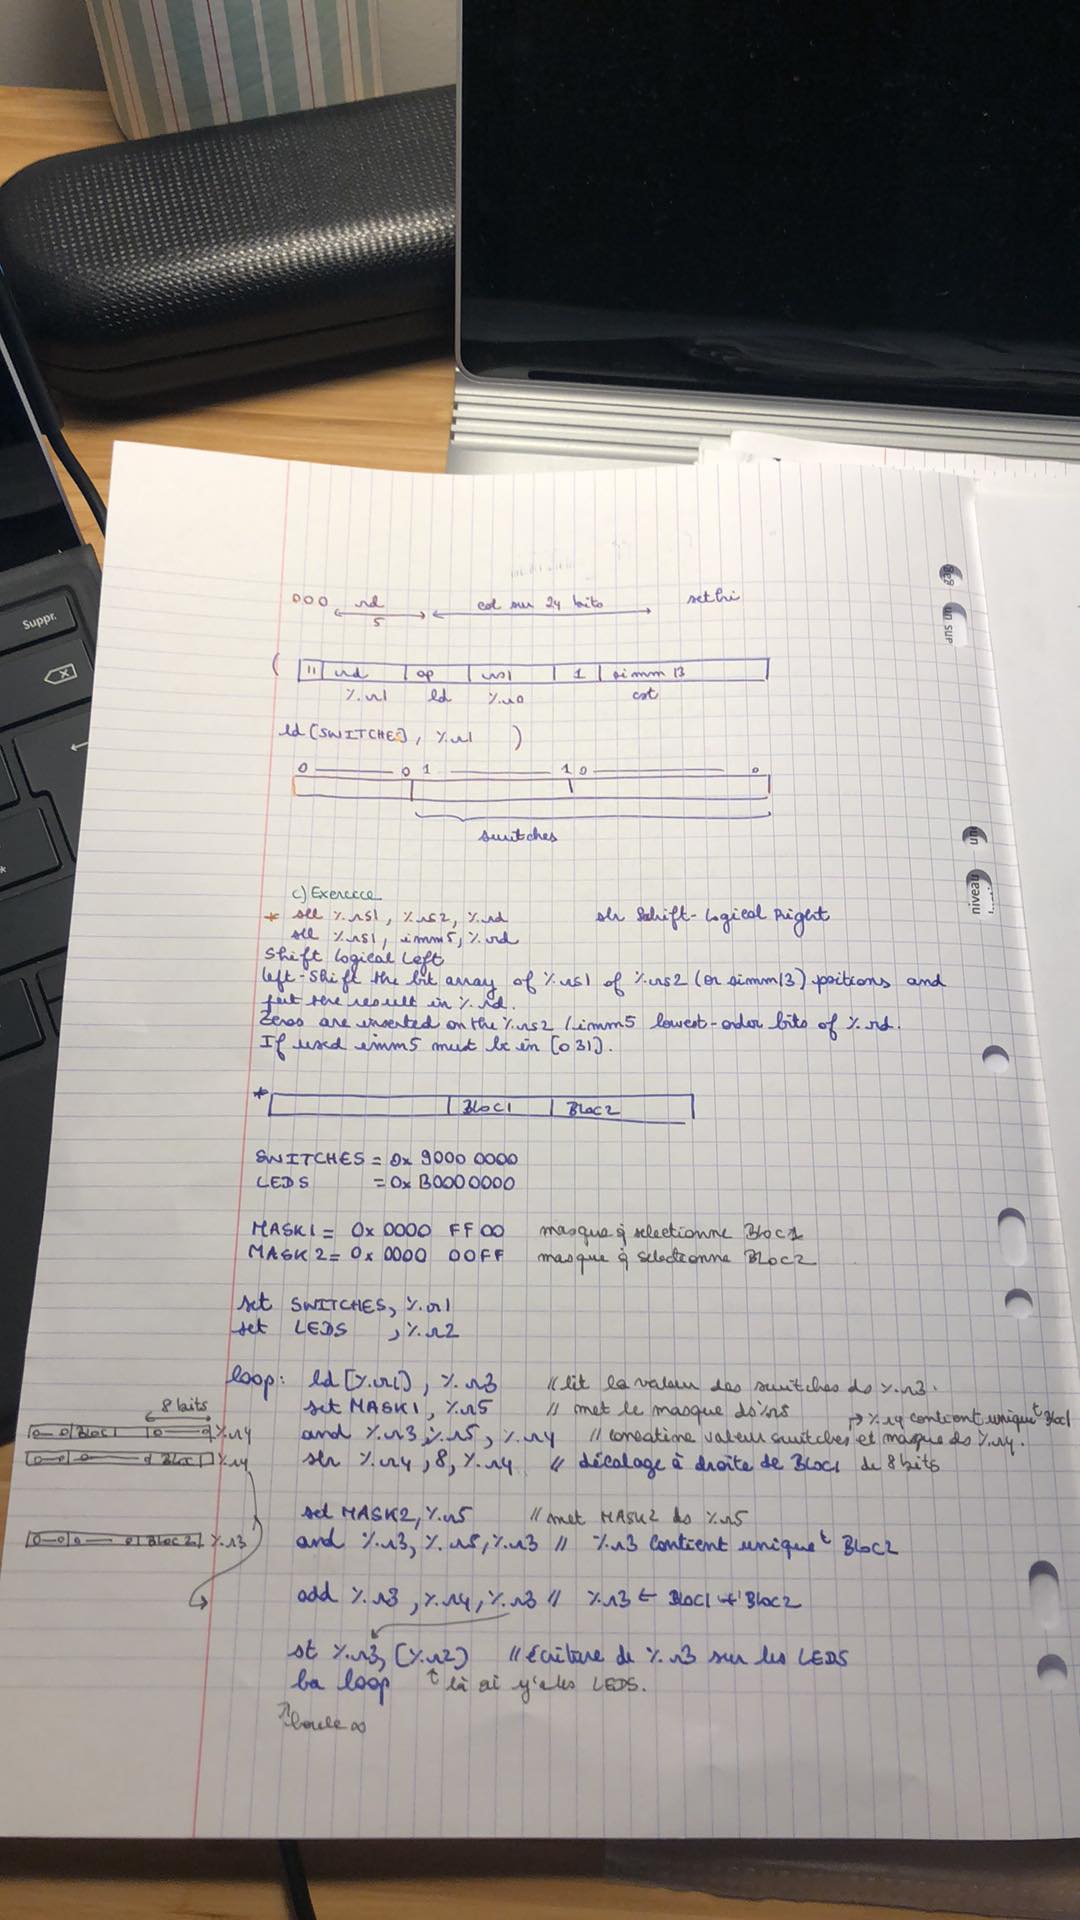 Suppr.
000 rd cst sur 24 bits sethi
5
( 11 rd op rs1 1 simm 13
%r1 ld %r0 cst
ld [SWITCHES], %r1 )
0 0 1 1 0 0
switches
c) Exercice
* sll %rs1, %rs2, %rd slr Schift-Logical Right
sll %rs1, imm5, %rd
Shift Logical Left
left-shift the bit array of %rs1 of %rs2 (or simm13) positions and
put the result in %rd.
Zeros are inserted on the %rs2 / imm5 lowest-order bits of %rd.
If used imm5 must be in [0 31].
* Bloc1 Bloc2
SWITCHES = 0x 9000 0000
LEDS = 0x B0000000
MASK1 = 0x 0000 FF00 masque q̇ selectionne Bloc1
MASK2 = 0x 0000 00FF masque q̇ selectionne Bloc2
set SWITCHES, %r1
set LEDS , %r2
loop: ld [%r1], %r3 // lit la valeur des switches ds %r3.
8 bits
set MASK1, %r5 // met le masque ds %r5 → %r4 contient uniqueᵗ Bloc1
0 0 Bloc1 0 0 %r4
and %r3, %r5, %r4 // valeur switches et masque ds %r4.
0 0 0 Bloc1 %r4
slr %r4, 8, %r4 // décalage à droite de Bloc1 de 8 bits
set MASK2, %r5 // met MASK2 ds %r5
0 0 0 0 Bloc2 %r3
and %r3, %r5, %r3 // %r3 contient uniqueᵗ Bloc2
add %r3, %r4, %r3 // %r3 ← Bloc1 + Bloc2
st %r3, [%r2] // écriture de %r3 sur les LEDS
ba loop ↑ là où y'a les LEDS.
↑ boucle ∞
gag
un sup
uni
niveau